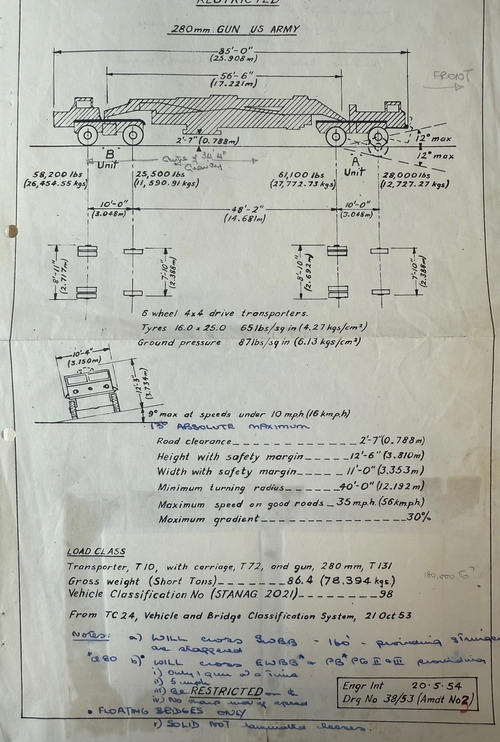 RESTRICTED
280mm. GUN US ARMY
85'-0"
(25.908m)
56'-6"
(17.221m)
FRONT
12° max
12° max
2'-7" (0.788m)
B
Unit
A
Unit
34'4"
58,200 lbs
(26,454.55 kgs)
25,500 lbs
(11,590.91 kgs)
61,100 lbs
(27,772.73 kgs)
28,000 lbs
(12,727.27 kgs)
10'-0"
(3.048m)
48'-2"
(14.681m)
10'-0"
(3.048m)
8'-11"
(2.717m)
7'-10"
(2.388m)
8'-10"
(2.692m)
7'-10"
(2.388m)
6 wheel 4x4 drive transporters.
Tyres 16.0 x 25.0 65lbs/sq in (4.27 kgs/cm²)
Ground pressure 87lbs/sq in (6.13 kgs/cm²)
10'-4"
(3.150m)
12'-3"
(3.734m)
9° max at speeds under 10 mph (16 kmph)
ABSOLUTE MAXIMUM
Road clearance 2'-7" (0.788m)
Height with safety margin 12'-6" (3.810m)
Width with safety margin 11'-0" (3.353m)
Minimum turning radius 40'-0" (12.192m)
Maximum speed on good roads 35 m.p.h. (56kmph)
Maximum gradient 30%
LOAD CLASS
Transporter, T10, with carriage, T72, and gun, 280 mm, T131
Gross weight (Short Tons) 86.4 (78.394 kgs.)
Vehicle Classification No (STANAG 2021) 98
From TC 24, Vehicle and Bridge Classification System, 21 Oct 53
Notes: a) WILL cross - 160' - providing
as staggered
b) WILL cross EWBB providing
i) Only 1 gun at a time
ii) 5 mph
iii) Be
RESTRICTED
iv) No speed
• FLOATING BRIDGES ONLY
SOLID NOT
Engr Int 20.5.54
Drg No 38/53 (Amdt No 2)